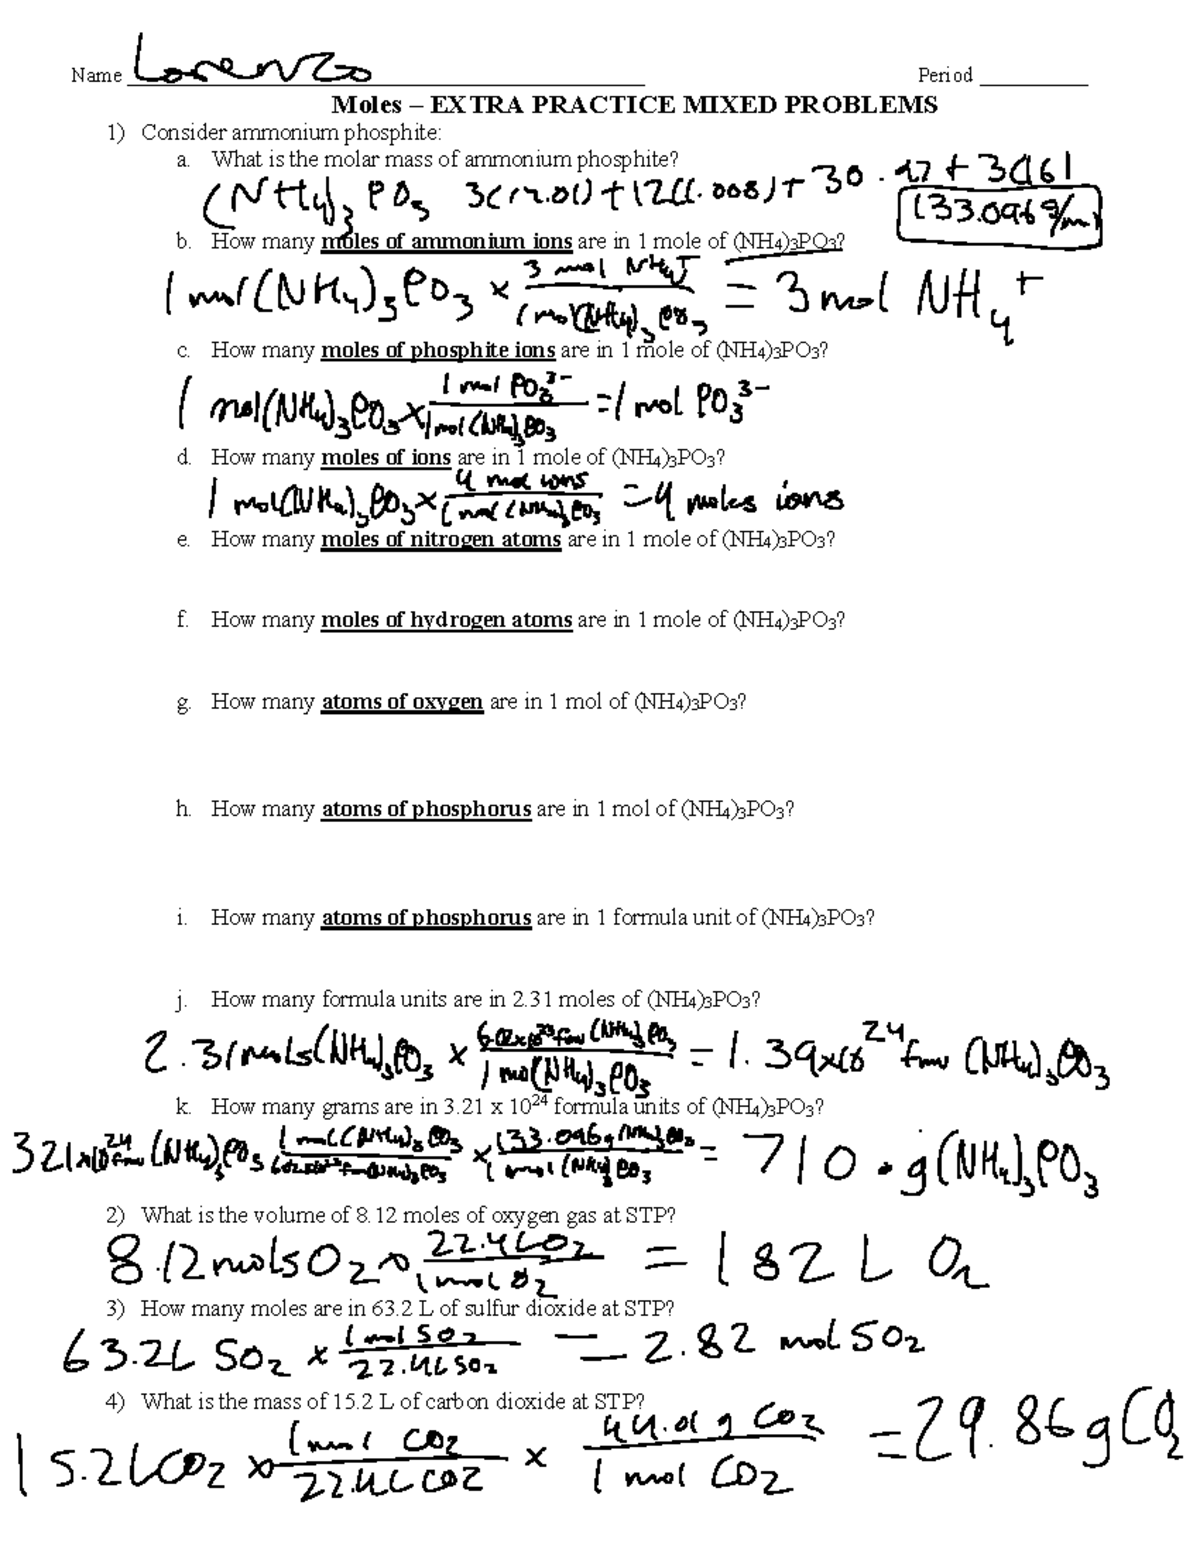 Name Lorenzo Period
Moles – EXTRA PRACTICE MIXED PROBLEMS
1) Consider ammonium phosphite:
a. What is the molar mass of ammonium phosphite?
(NH4)3 PO3 3(14.01)+12(1.008)+30.97+3(16)
133.096g/mol
b. How many moles of ammonium ions are in 1 mole of (NH4)3PO3?
1 mol(NH4)3PO3 × 3 mol NH4+ / 1 mol(NH4)3PO3 = 3 mol NH4+
c. How many moles of phosphite ions are in 1 mole of (NH4)3PO3?
1 mol(NH4)3PO3 × 1 mol PO3 3- / 1 mol(NH4)3PO3 = 1 mol PO3 3-
d. How many moles of ions are in 1 mole of (NH4)3PO3?
1 mol(NH4)3PO3 × 4 mol ions / 1 mol(NH4)3PO3 = 4 moles ions
e. How many moles of nitrogen atoms are in 1 mole of (NH4)3PO3?
f. How many moles of hydrogen atoms are in 1 mole of (NH4)3PO3?
g. How many atoms of oxygen are in 1 mol of (NH4)3PO3?
h. How many atoms of phosphorus are in 1 mol of (NH4)3PO3?
i. How many atoms of phosphorus are in 1 formula unit of (NH4)3PO3?
j. How many formula units are in 2.31 moles of (NH4)3PO3?
2.31 mols(NH4)3PO3 × 6.02×10^23 fun (NH4)3PO3 / 1 mol(NH4)3PO3 = 1.39×10^24 fun (NH4)3PO3
k. How many grams are in 3.21 x 10^24 formula units of (NH4)3PO3?
3.21×10^24 fun (NH4)3PO3 × 1 mol(NH4)3PO3 / 6.02×10^23 fun(NH4)3PO3 × 133.096g(NH4)3PO3 / 1 mol (NH4)3PO3 = 710. g(NH4)3PO3
2) What is the volume of 8.12 moles of oxygen gas at STP?
8.12 mols O2 × 22.4L O2 / 1 mol O2 = 182 L O2
3) How many moles are in 63.2 L of sulfur dioxide at STP?
63.2L SO2 × 1 mol SO2 / 22.4L SO2 = 2.82 mol SO2
4) What is the mass of 15.2 L of carbon dioxide at STP?
15.2L CO2 × 1 mol CO2 / 22.4L CO2 × 44.01 g CO2 / 1 mol CO2 = 29.86 g CO2